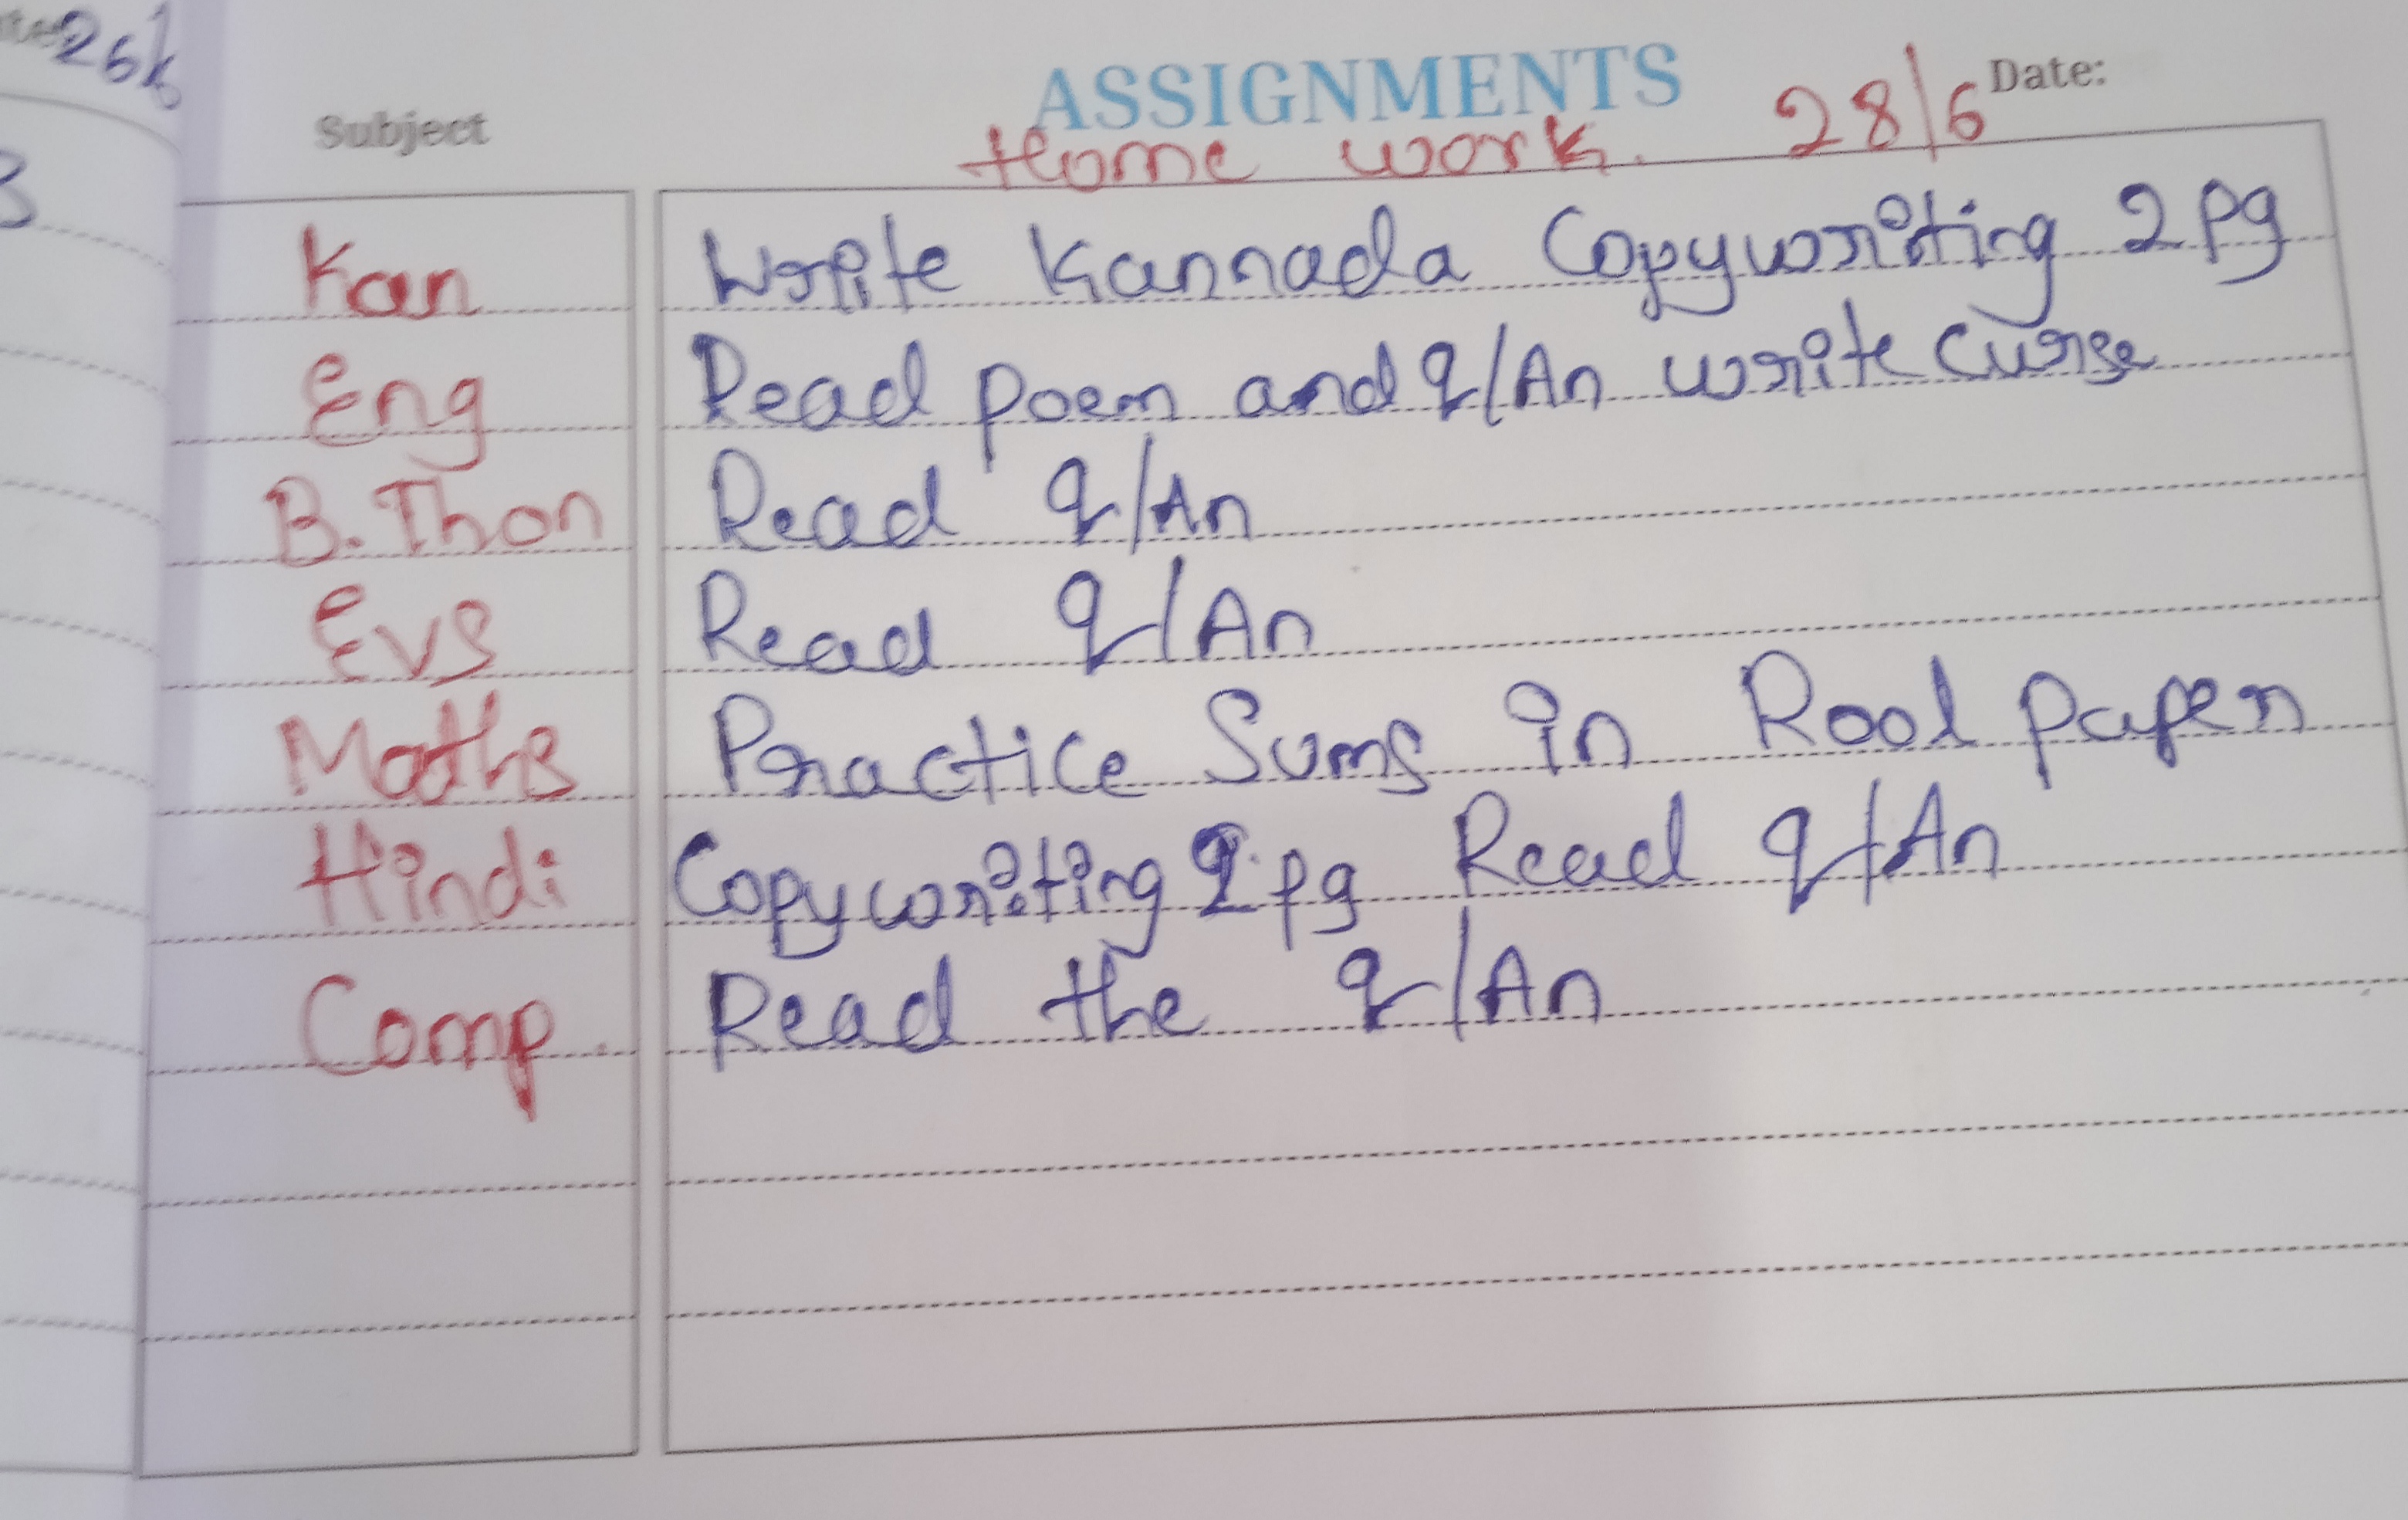 26/6
Subject ASSIGNMENTS Date:
Home work. 28/6
Kan Write Kannada Copywriting 2 pg
Eng Read poem and q/An write Curse
B.Thon Read q/An
Evs Read q/An
Maths Practice Sums in Rool paper
Hindi Copywriting 2 pg Read q/An
Comp. Read the q/An